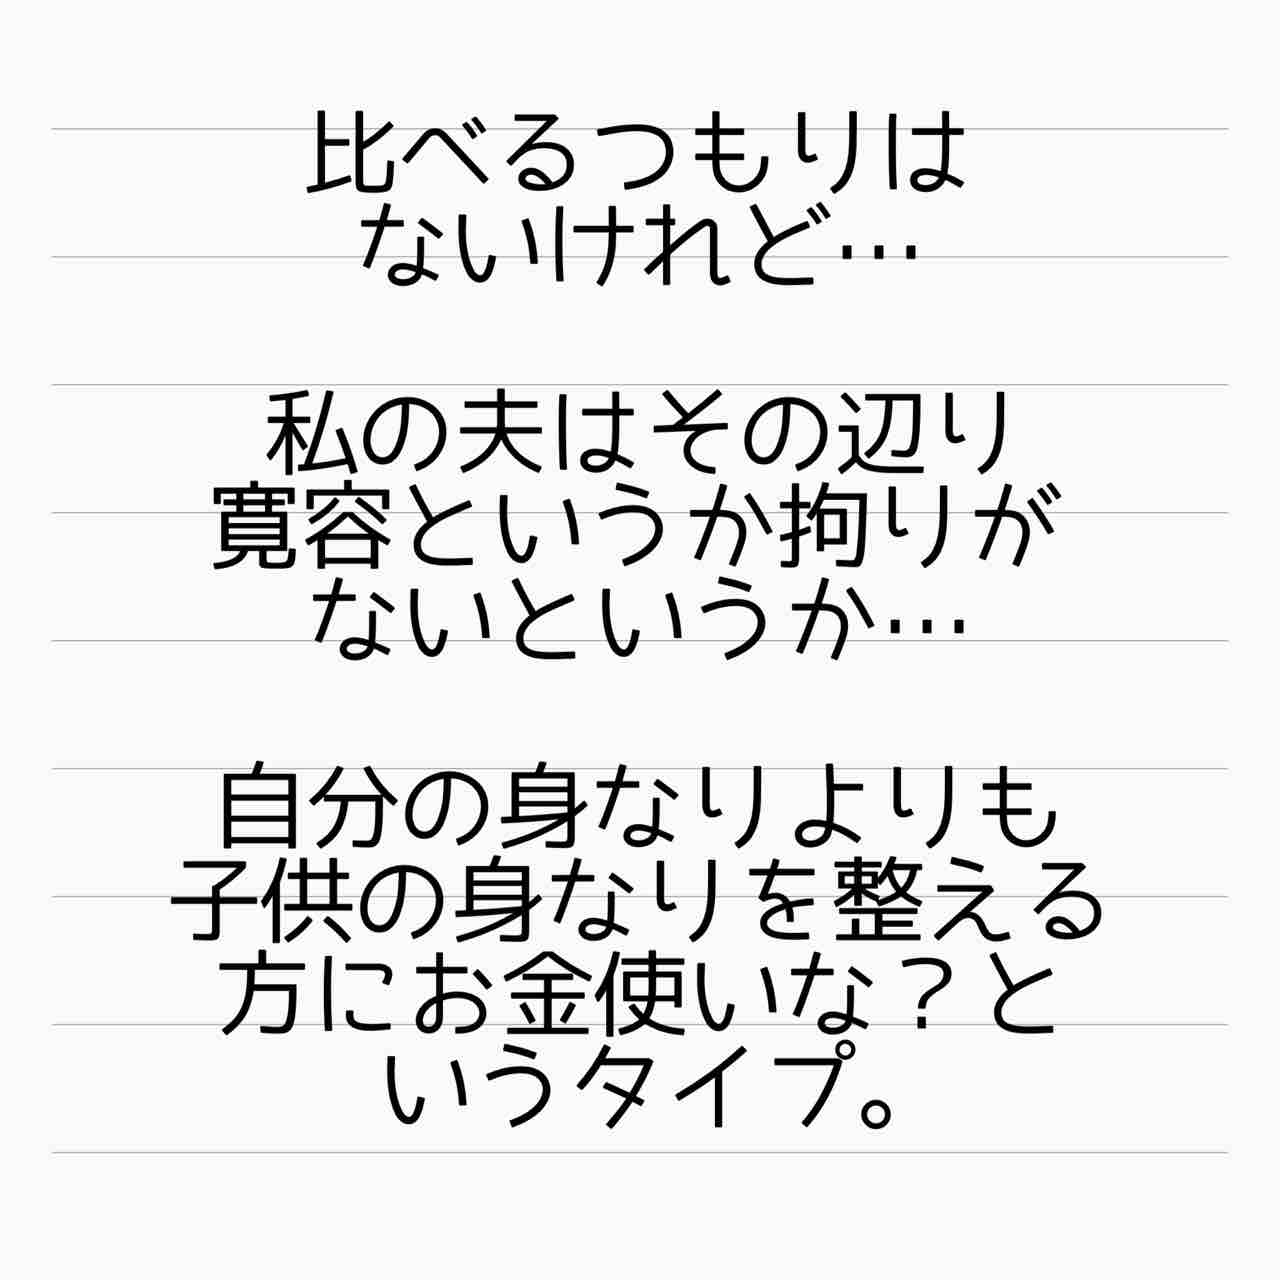 比べるつもりは
ないけれど…
私の夫はその辺り
寛容というか拘りが
ないというか…
自分の身なりよりも
子供の身なりを整える
方にお金使いな？と
いうタイプ。